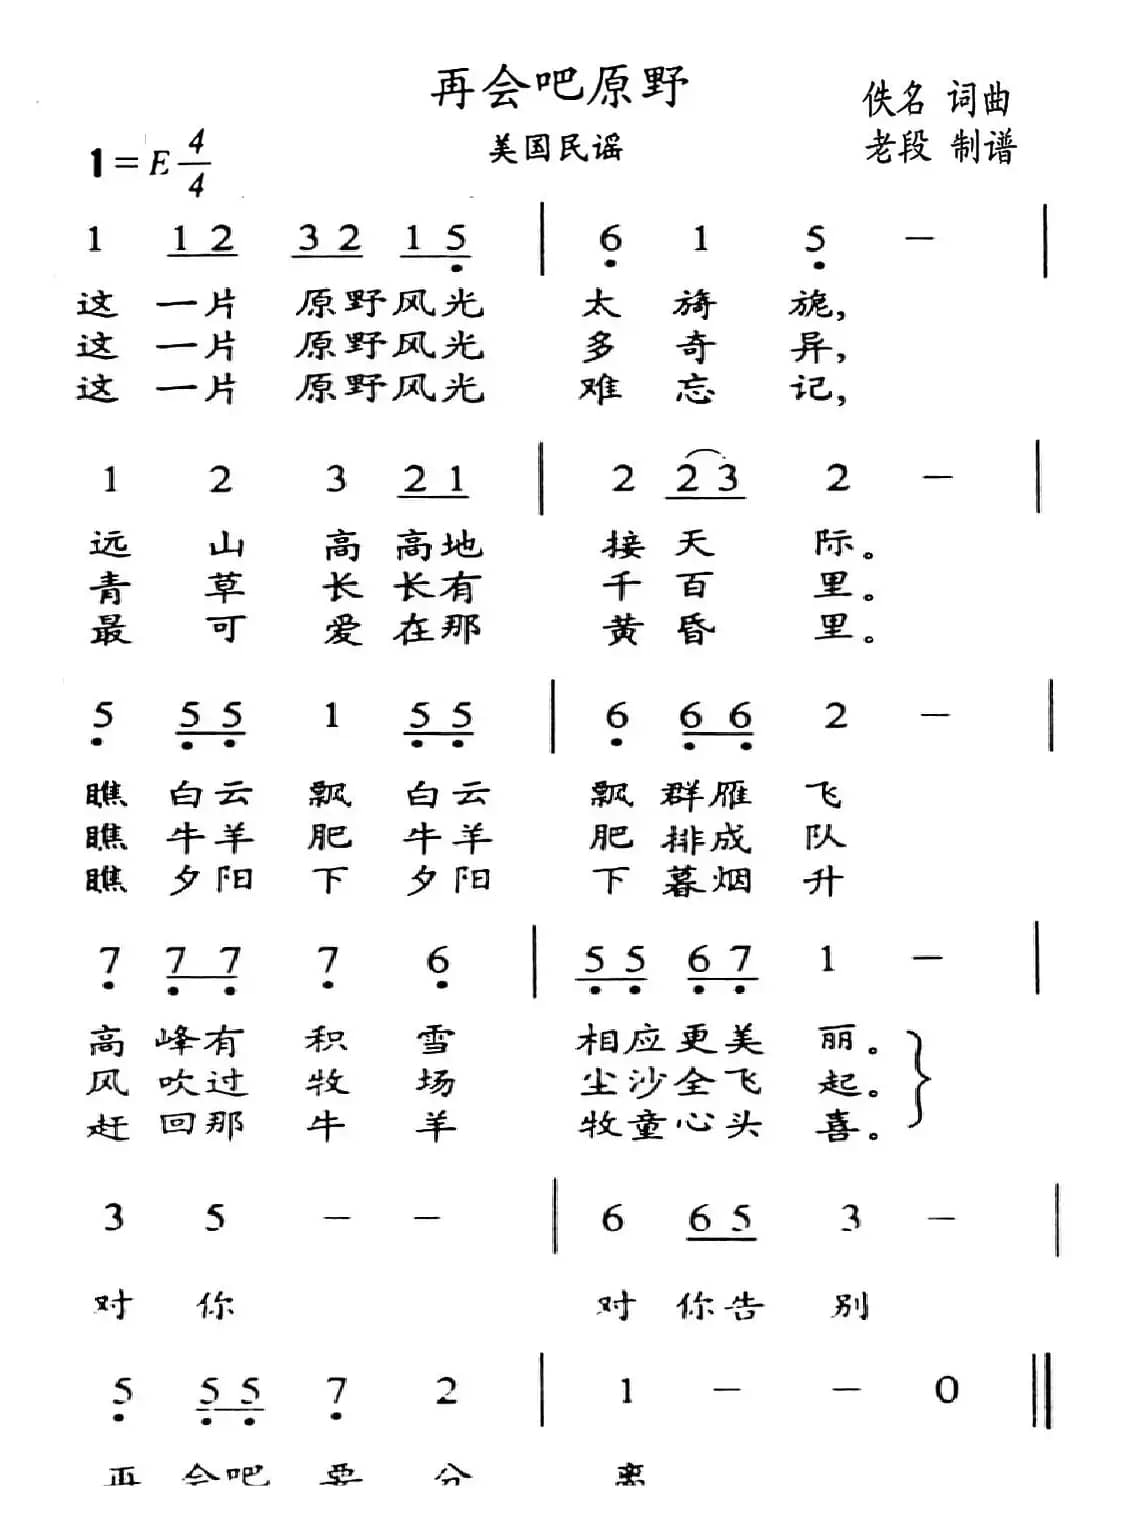 再会吧原野
佚名 词曲
美国民谣
老段 制谱
1=E 4/4
1 1 2 3 2 1 5 | 6 1 5 — |
这一片原野风光太旖旎，
这一片原野风光多奇异，
这一片原野风光难忘记，
1 2 3 2 1 | 2 2 3 2 — |
远山高高地接天际。
青草长长有千百里。
最可爱在那黄昏里。
5 5 5 1 5 5 | 6 6 6 2 — |
瞧白云飘白云飘群雁飞
瞧牛羊肥牛羊肥排成队
瞧夕阳下夕阳下暮烟升
7 7 7 7 6 | 5 5 6 7 1 — |
高峰有积雪相应更美丽。
风吹过牧场尘沙全飞起。
赶回那牛羊牧童心头喜。
3 5 — — | 6 6 5 3 — |
对你 对你告别
5 5 5 7 2 | 1 — — 0 ‖
再会吧要分离